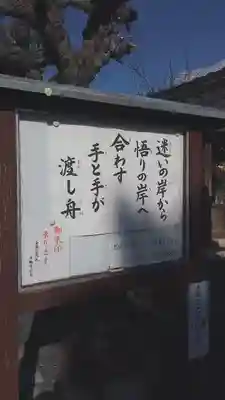 迷いの岸から
悟りの岸へ
合わす
手と手が
渡し舟
御朱印